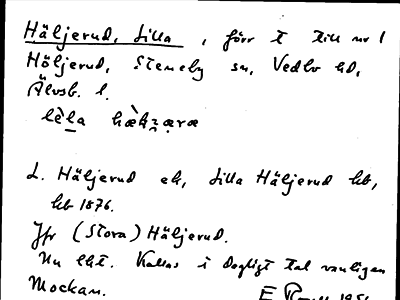 Häljerud, Lilla, förr t till nr 1
Häljerud, Steneby sn, Vedbo hd,
Älvsb. l.
L. Häljerud ek, Lilla Häljerud kb,
kb 1876.
Jfr (Stora) Häljerud.
Nu lht. Kallas i dagligt tal vanligen
Mockan.